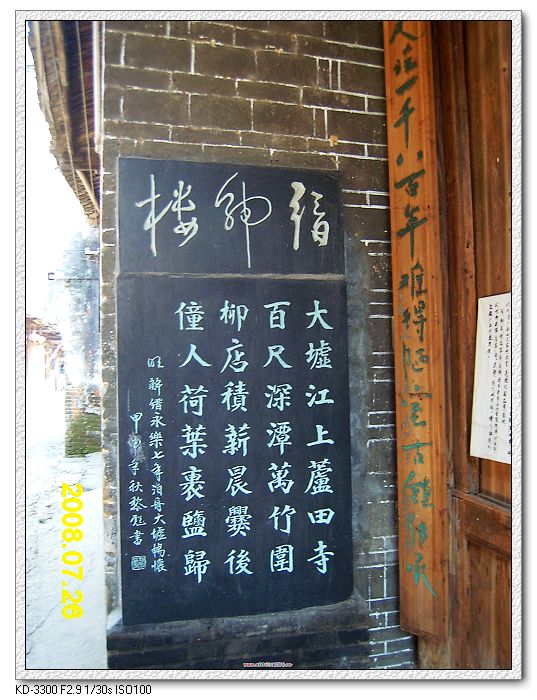 縉紳樓
大墟江上蘆田寺
百尺深潭萬竹圍
柳店積薪晨爨後
僮人荷葉裹鹽歸
明 解縉永樂七年泊舟大墟暢懷
甲申年秋黎書
一千八百年難得古鎮
2008.07.26
KD-3300 F2.9 1/30s ISO100